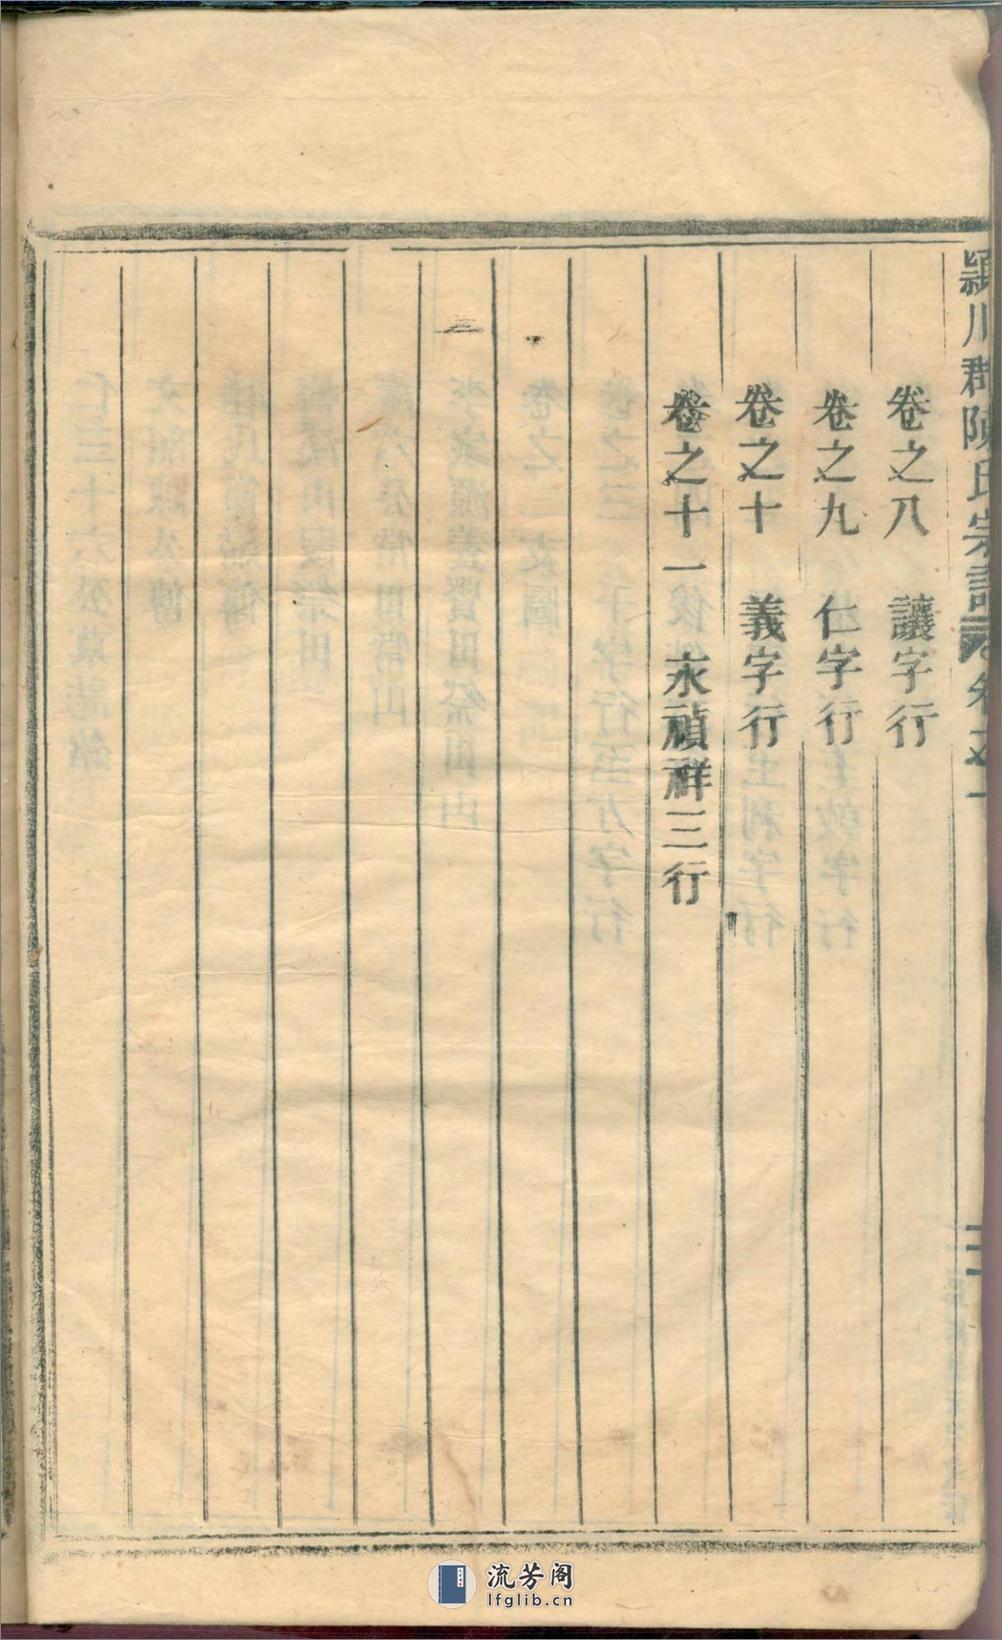 潁川郡陳氏宗譜 卷之一
三
卷之八 讓字行
卷之九 仁字行
卷之十 義字行
卷之十一 永禎祥三行
流芳阁
lfglib.cn